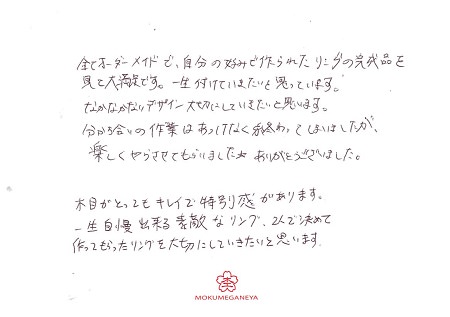 全てオーダーメイドで、自分の好みで作られたリングの完成品を
見て大満足です。一生付けていきたいと思っています。
なかなかないデザイン大切にしていきたいと思います。
分かち合いの作業はあっけなく終わってしまいましたが、
楽しくやらさせてもらいました☆ ありがとうございました。
木目がとってもキレイで特別感があります。
一生自慢出来る素敵なリング、2人で決めて
作ってもらったリングを大切にしていきたいと思います。
MOKUMEGANEYA